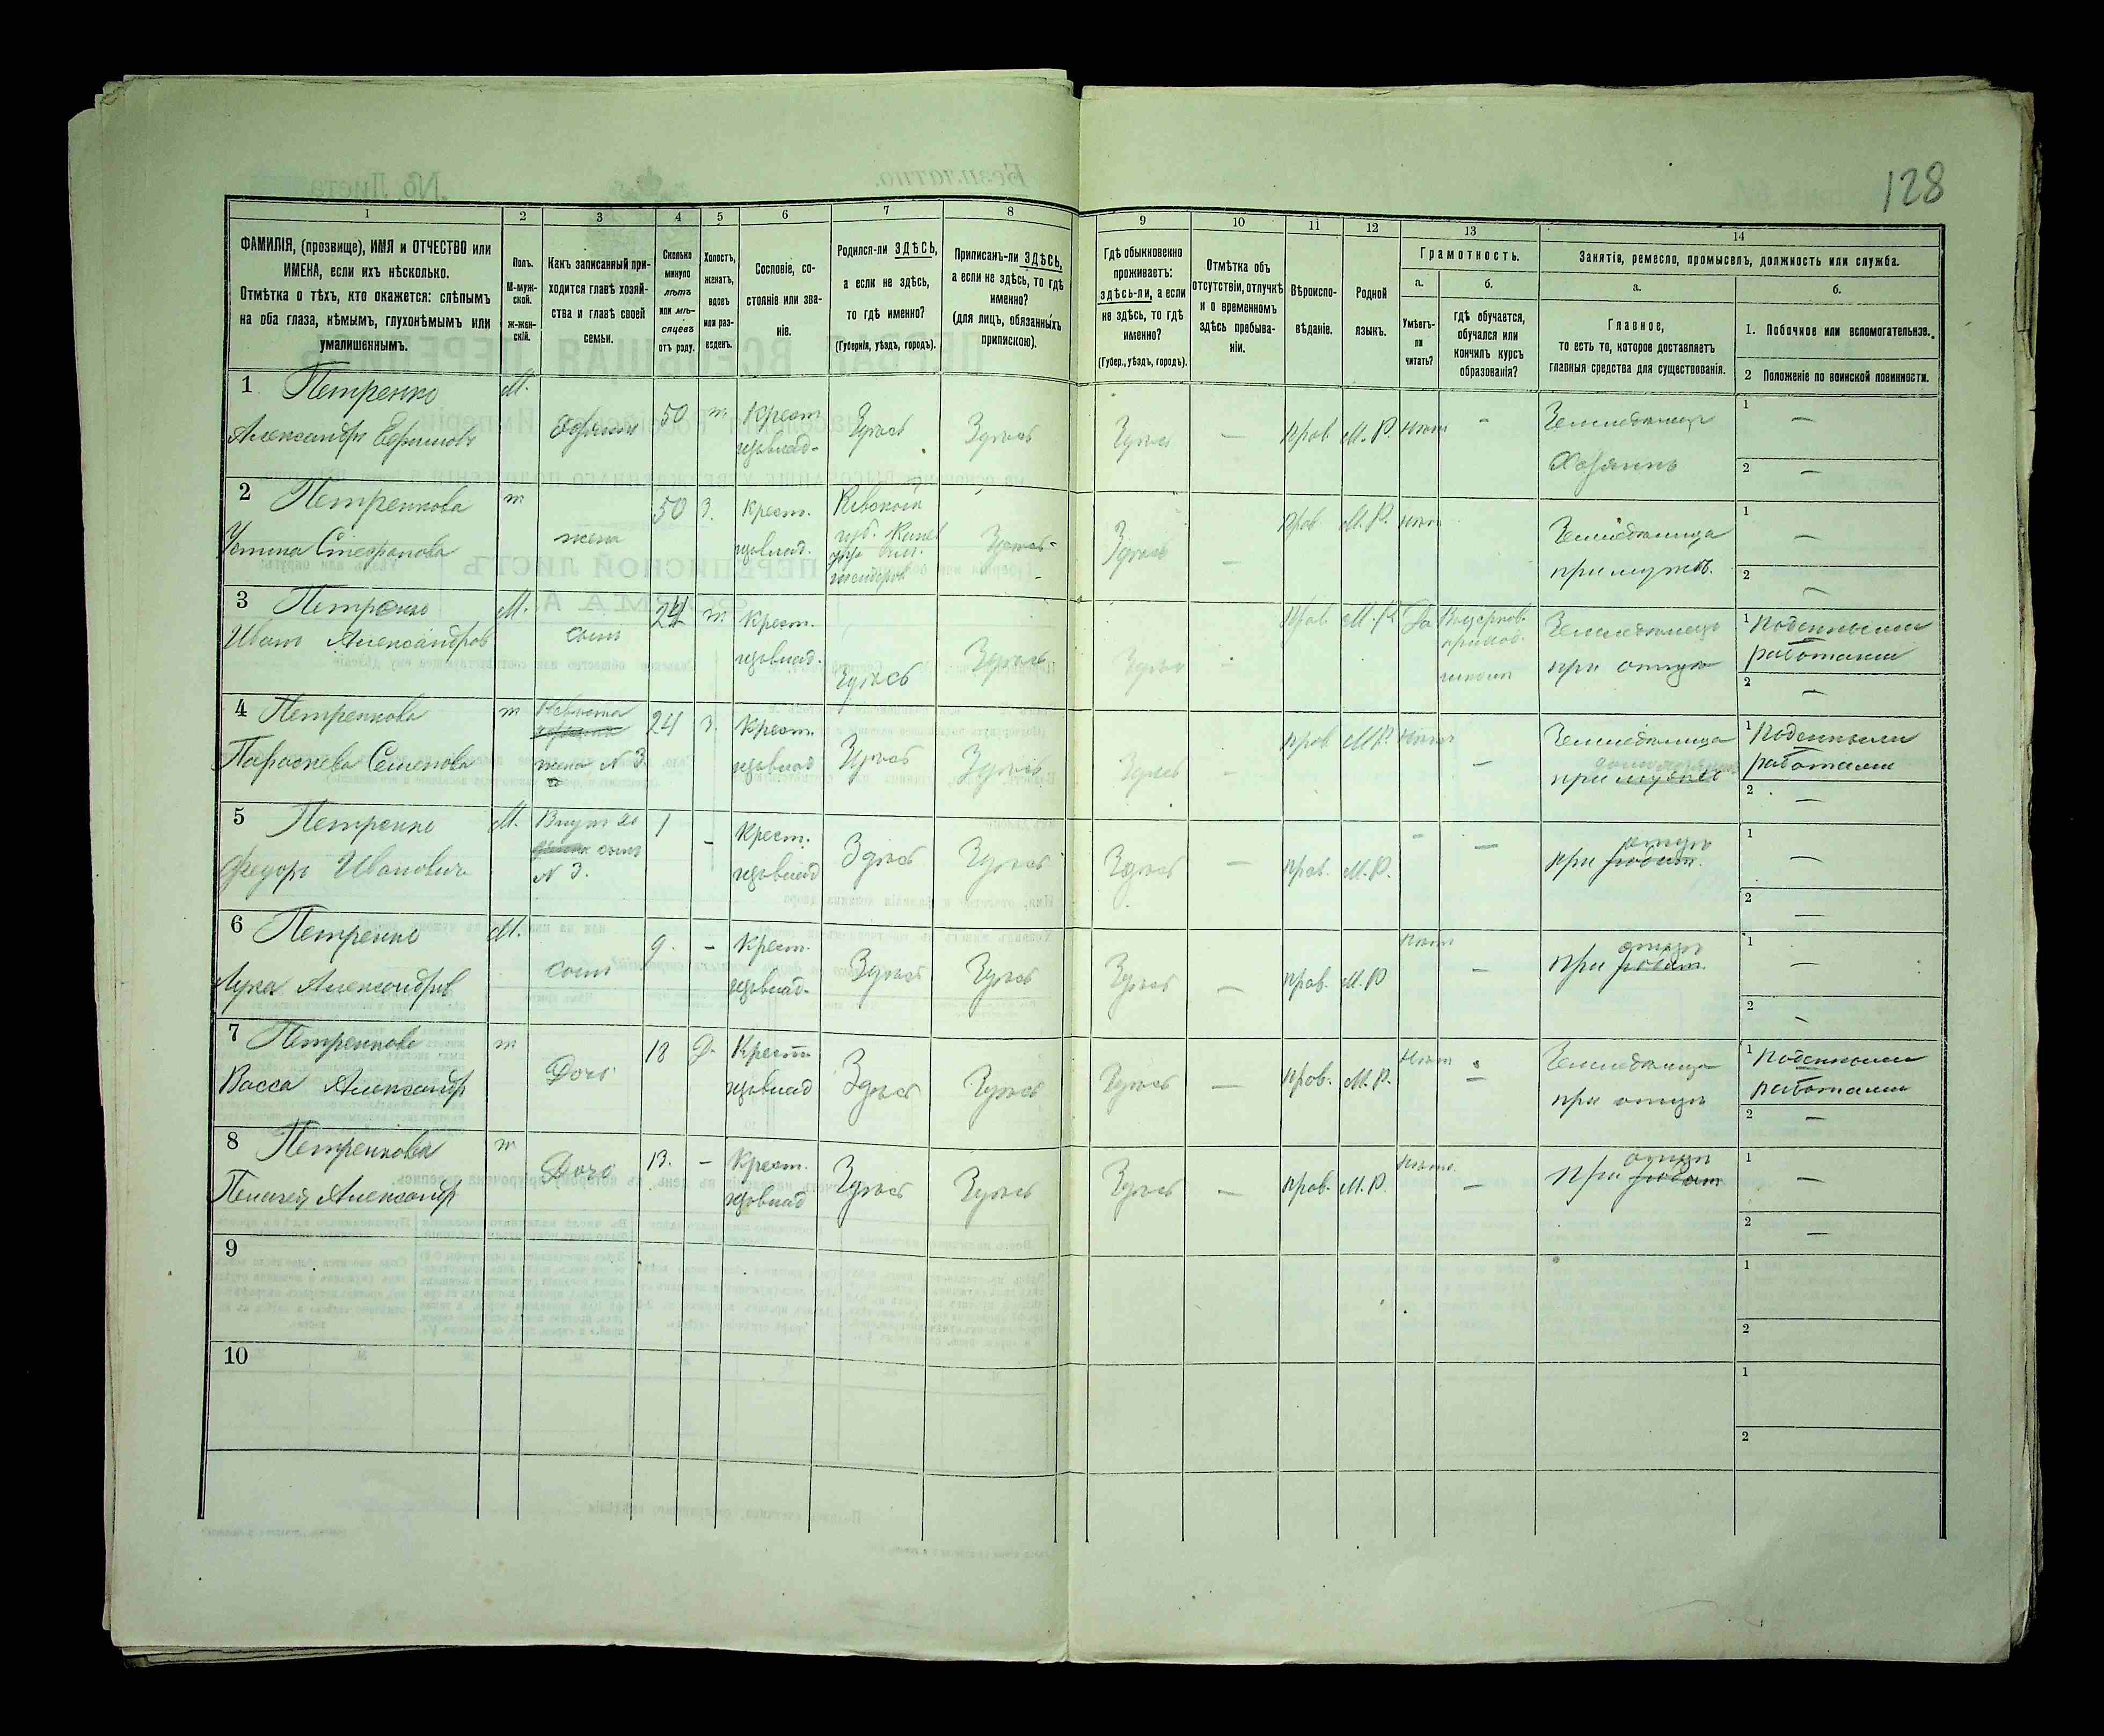 128
1
2
3
4
5
6
7
8
9
10
11
12
13
14
ФАМИЛІЯ, (прозвище), ИМЯ и ОТЧЕСТВО или
ИМЕНА, если ихъ нѣсколько.
Отмѣтка о тѣхъ, кто окажется: слѣпымъ
на оба глаза, нѣмымъ, глухонѣмымъ или
умалишеннымъ.
Полъ.
М-муж-
ской.
ж-жен-
скій.
Какъ записанный при-
ходится главѣ хозяй-
ства и главѣ своей
семьи.
Сколько
минуло
лѣтъ
или мѣ-
сяцевъ
отъ роду.
Холостъ,
женатъ,
вдовъ
или раз-
веденъ.
Сословіе, со-
стояніе или зва-
ніе.
Родился-ли ЗДѢСЬ,
а если не здѣсь,
то гдѣ именно?
(Губернія, уѣздъ, городъ).
Приписанъ-ли ЗДѢСЬ,
а если не здѣсь, то гдѣ
именно?
(для лицъ, обязанныхъ
припискою).
Гдѣ обыкновенно
проживаетъ:
здѣсь-ли, а если
не здѣсь, то гдѣ
именно?
(Губер., уѣздъ, городъ).
Отмѣтка объ
отсутствіи, отлучкѣ
и о временномъ
здѣсь пребыва-
ніи.
Вѣроиспо-
вѣданіе.
Родной
языкъ.
Грамотность.
а.
Умѣетъ-
ли
читать?
б.
гдѣ обучается,
обучался или
кончилъ курсъ
образованія?
Занятія, ремесло, промыселъ, должность или служба.
а.
Главное,
то есть то, которое доставляетъ
главныя средства для существованія.
б.
1. Побочное или вспомогательное.
2 Положеніе по воинской повинности.
1 Петренко
Александръ Ефимовъ
М.
хозяинъ
50
ж.
Крест.
Здѣсь
Здѣсь
Здѣсь
—
прав.
М. Р.
нѣтъ
-
Земледѣлецъ
Хозяинъ
1 —
2 —
2 Петренкова
Устина Стефанова
ж
жена
50
З.
Крест.
Кіевской
губ. Канев
Здѣсь
Здѣсь
—
прав
М. Р.
нѣтъ
Земледѣлица
при мужѣ.
1 —
2 —
3 Петренко
Иванъ Александров
М.
сынъ
24
ж.
Крест.
Здѣсь
Здѣсь
Здѣсь
—
прав
М. Р.
Да
В церков.
приход.
школѣ
Земледѣлецъ
при отцѣ
1 Поденными
работами
2 —
4 Петренкова
Параскева Семенова
ж
Невѣстка
жена N 3
24
З.
Крест.
Здѣсь
Здѣсь
Здѣсь
—
прав
М. Р.
нѣтъ
—
Земледѣлица
при мужѣ
1 Поденными
работами
2 —
5 Петренко
Федоръ Ивановичъ
М.
Внукъ
сынъ
N 3.
1
-
Крест.
Здѣсь
Здѣсь
Здѣсь
—
прав.
М. Р.
—
—
при отцѣ
1 —
2 —
6 Петренко
Лука Александров
М.
сынъ
9.
-
Крест.
Здѣсь
Здѣсь
Здѣсь
—
прав.
М. Р
нѣтъ
—
при отцѣ
1 —
2 —
7 Петренкова
Васса Александр
ж
Дочь
18
Д.
Крест.
Здѣсь
Здѣсь
Здѣсь
—
прав.
М. Р.
нѣтъ
—
Земледѣлица
при отцѣ
1 Поденными
работами
2 —
8 Петренкова
Александр
ж
Дочь
13.
-
Крест.
Здѣсь
Здѣсь
Здѣсь
—
прав.
М. Р.
нѣтъ
—
при отцѣ
1 —
2 —
9
1
2
10
1
2